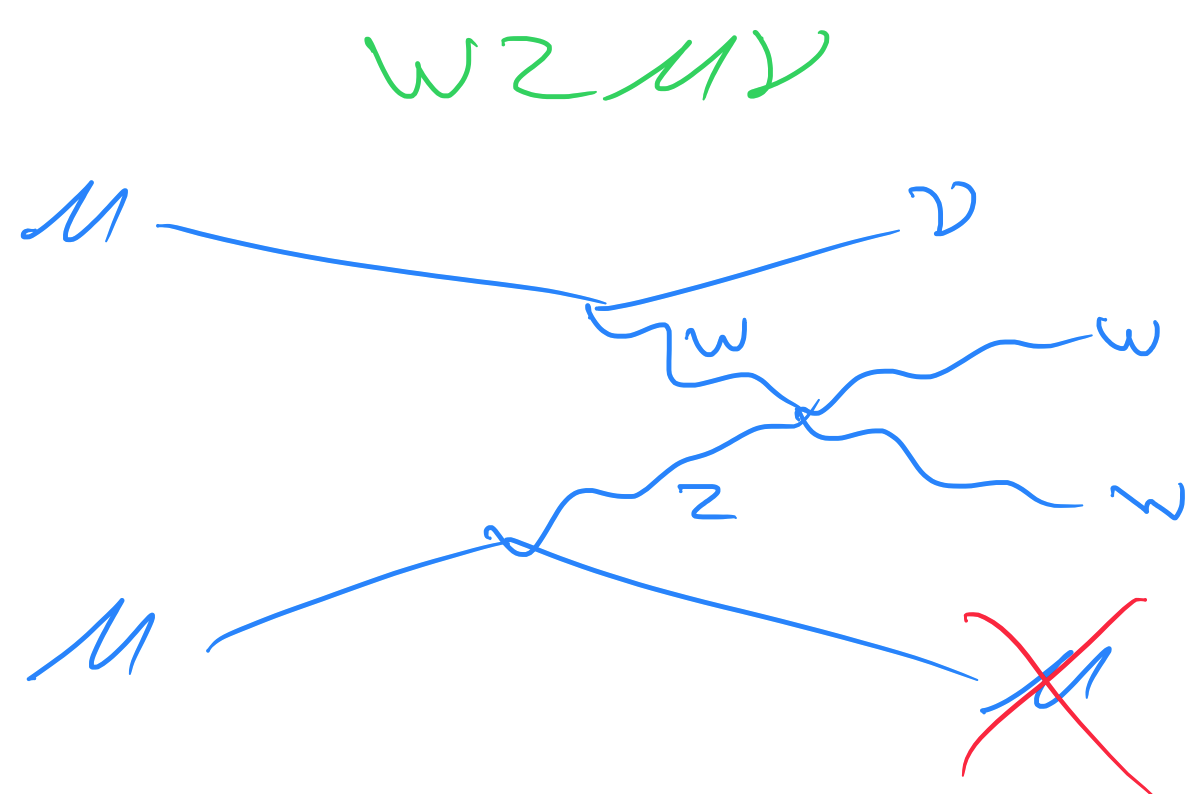 WZμν
μ ν
W W
Z W
μ μ